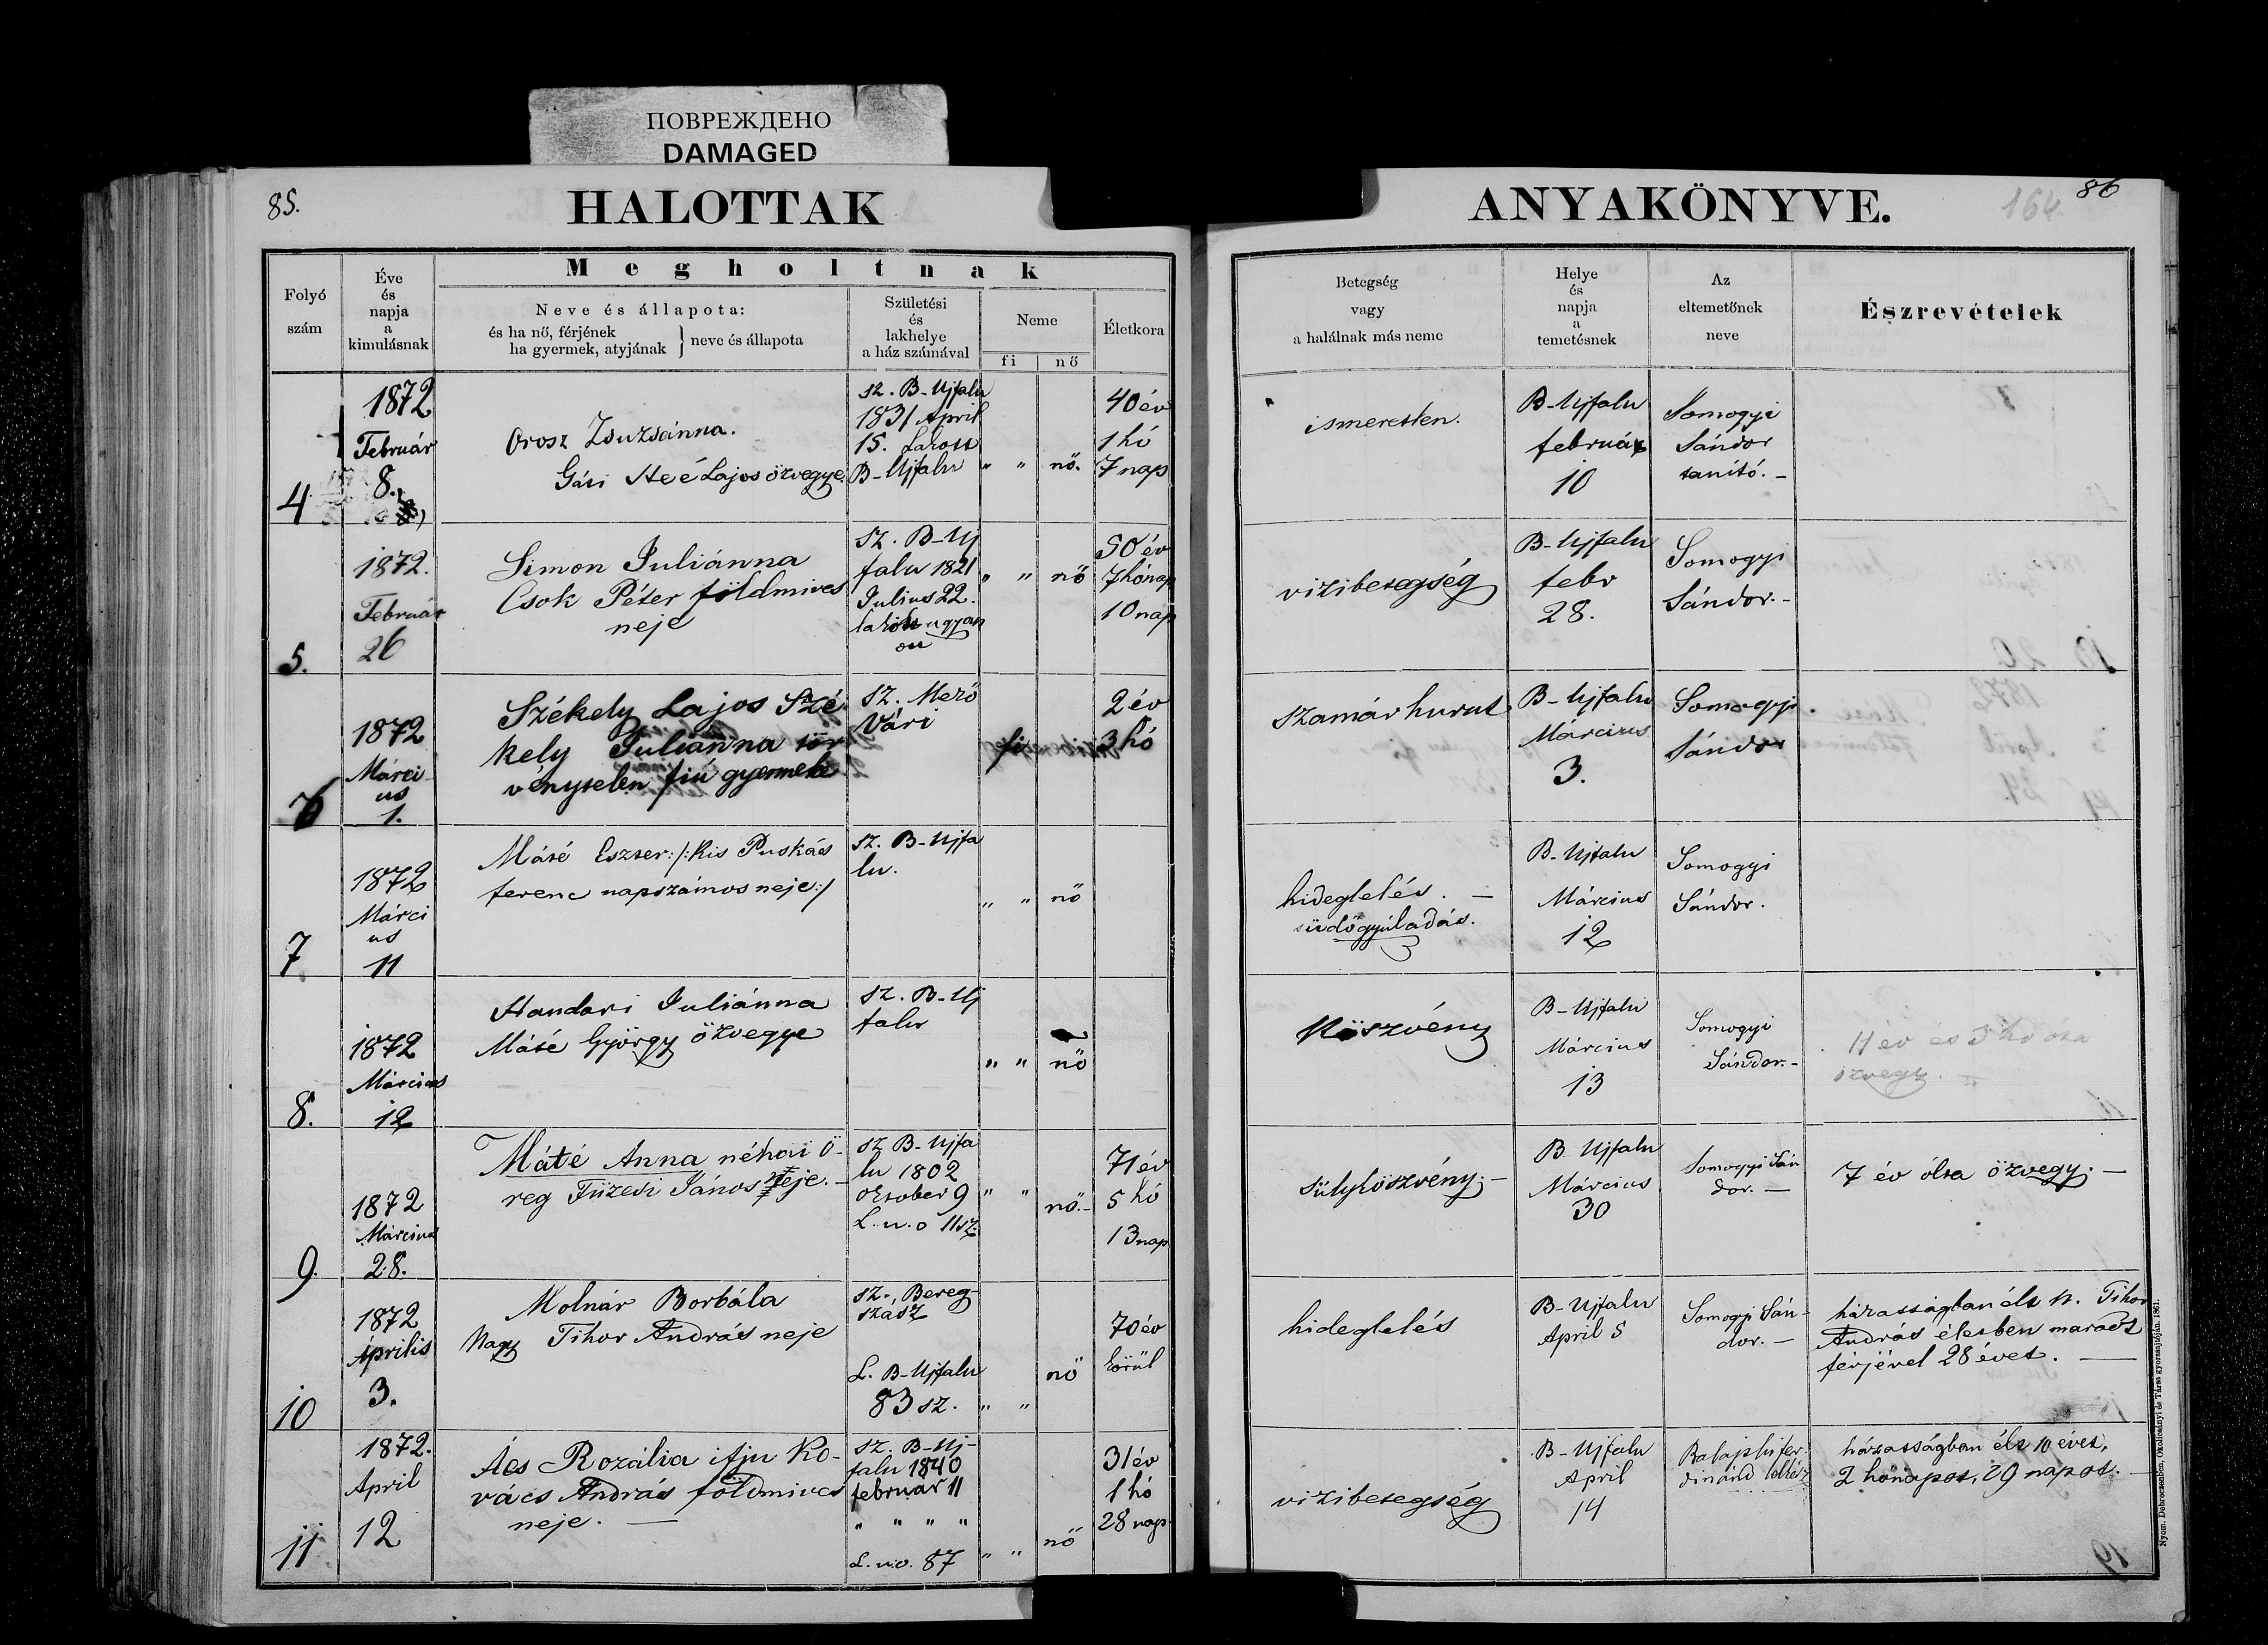 ПОВРЕЖДЕНО
DAMAGED
85.
HALOTTAK
ANYAKÖNYVE.
164.
86
Folyó
szám
Éve
és
napja
a
kimulásnak
Megholtnak
Neve és állapota:
és ha nő, férjének
ha gyermek, atyjának } neve és állapota
Születési
és
lakhelye
a ház számával
Neme
fi
nő
Életkora
Betegség
vagy
a halálnak más neme
Helye
és
napja
a
temetésnek
Az
eltemetőnek
neve
Észrevételek
4
1872
Február
8.
Orosz Zsuzsánna.
Lajos özvegye.
sz. B-Ujfalu
1831 April
15. Lakott
B-Ujfalu
" " nő.
40 év
1 hó
7 nap
ismeretlen.
B-Ujfalu
február
10
Somogyi
Sándor
tanító. -
5.
1872.
Február
26
Simon Juliánna
Csok Péter földmives
neje
sz. B-Uj
falu 1821
Julius 22.
lakik ugyan
ott
" " nő
50 év
7 hónap
10 nap
vizibetegség
B-Ujfalu
febr
28.
Somogyi
Sándor. -
6
1872
Márci-
us
1.
Székely Lajos Szé-
kely Juliánna tör
vénytelen fiú gyermeke
sz. Mező
Vári
fi
2 év
3 hó
szamárhurut
B-Ujfalu
Március
3.
Somogyi
Sándor
7
1872
Márci
us
11
Máté Eszter :/: Kis Puskás
ferenc napszámos neje :/
sz. B-Ujfa
lu.
" " nő
hideglelés. -
tüdőgyúladás.
B-Ujfalu
Március
12
Somogyi
Sándor.
8.
1872
Március
12
Handari Juliánna
Máté György özvegye
sz. B-Uj
falu
" " nő
Köszvény
B-Ujfalu
Március
13
Somogyi
Sándor. -
11 év és 3 hó óta
özvegy. -
9.
1872
Március
28.
Máté Anna néhai ö-
reg Füzesi János neje. -
sz B-Ujfa
lu 1802
oktober 9
L. u. o 11 sz.
" " nő. -
71 év
5 hó
13 nap
sülyköszvény. -
B Ujfalu
Március
30
Somogyi Sán
dor. -
7 év ólta özvegy. -
10
1872
Április
3.
Molnár Borbála
Nagy Tihor András neje
sz. Bereg-
szász
L. B-Ujfalu
83 sz. " "
nő
70 év
körül
hideglelés
B-Ujfalu
April 5
Somogyi Sán-
dor. -
házasságban élt N. Tihor
András életben maradt
férjével 28 évet. -
11
1872.
April
12
Ács Rozália ifju Ko-
vács András földmives
neje. -
sz. B-Uj-
falu 1840
február 11
" " " "
L. u. o. 87
" " nő
31 év
1 hó
28 nap
vizibetegség
B-Ujfalu
April
14
házasságban élt 10 évet,
2 hónapot, 29 napot. -
Nyom. Debreczenben, Okolicsányi és Társa gyorssajtóján. 1861.